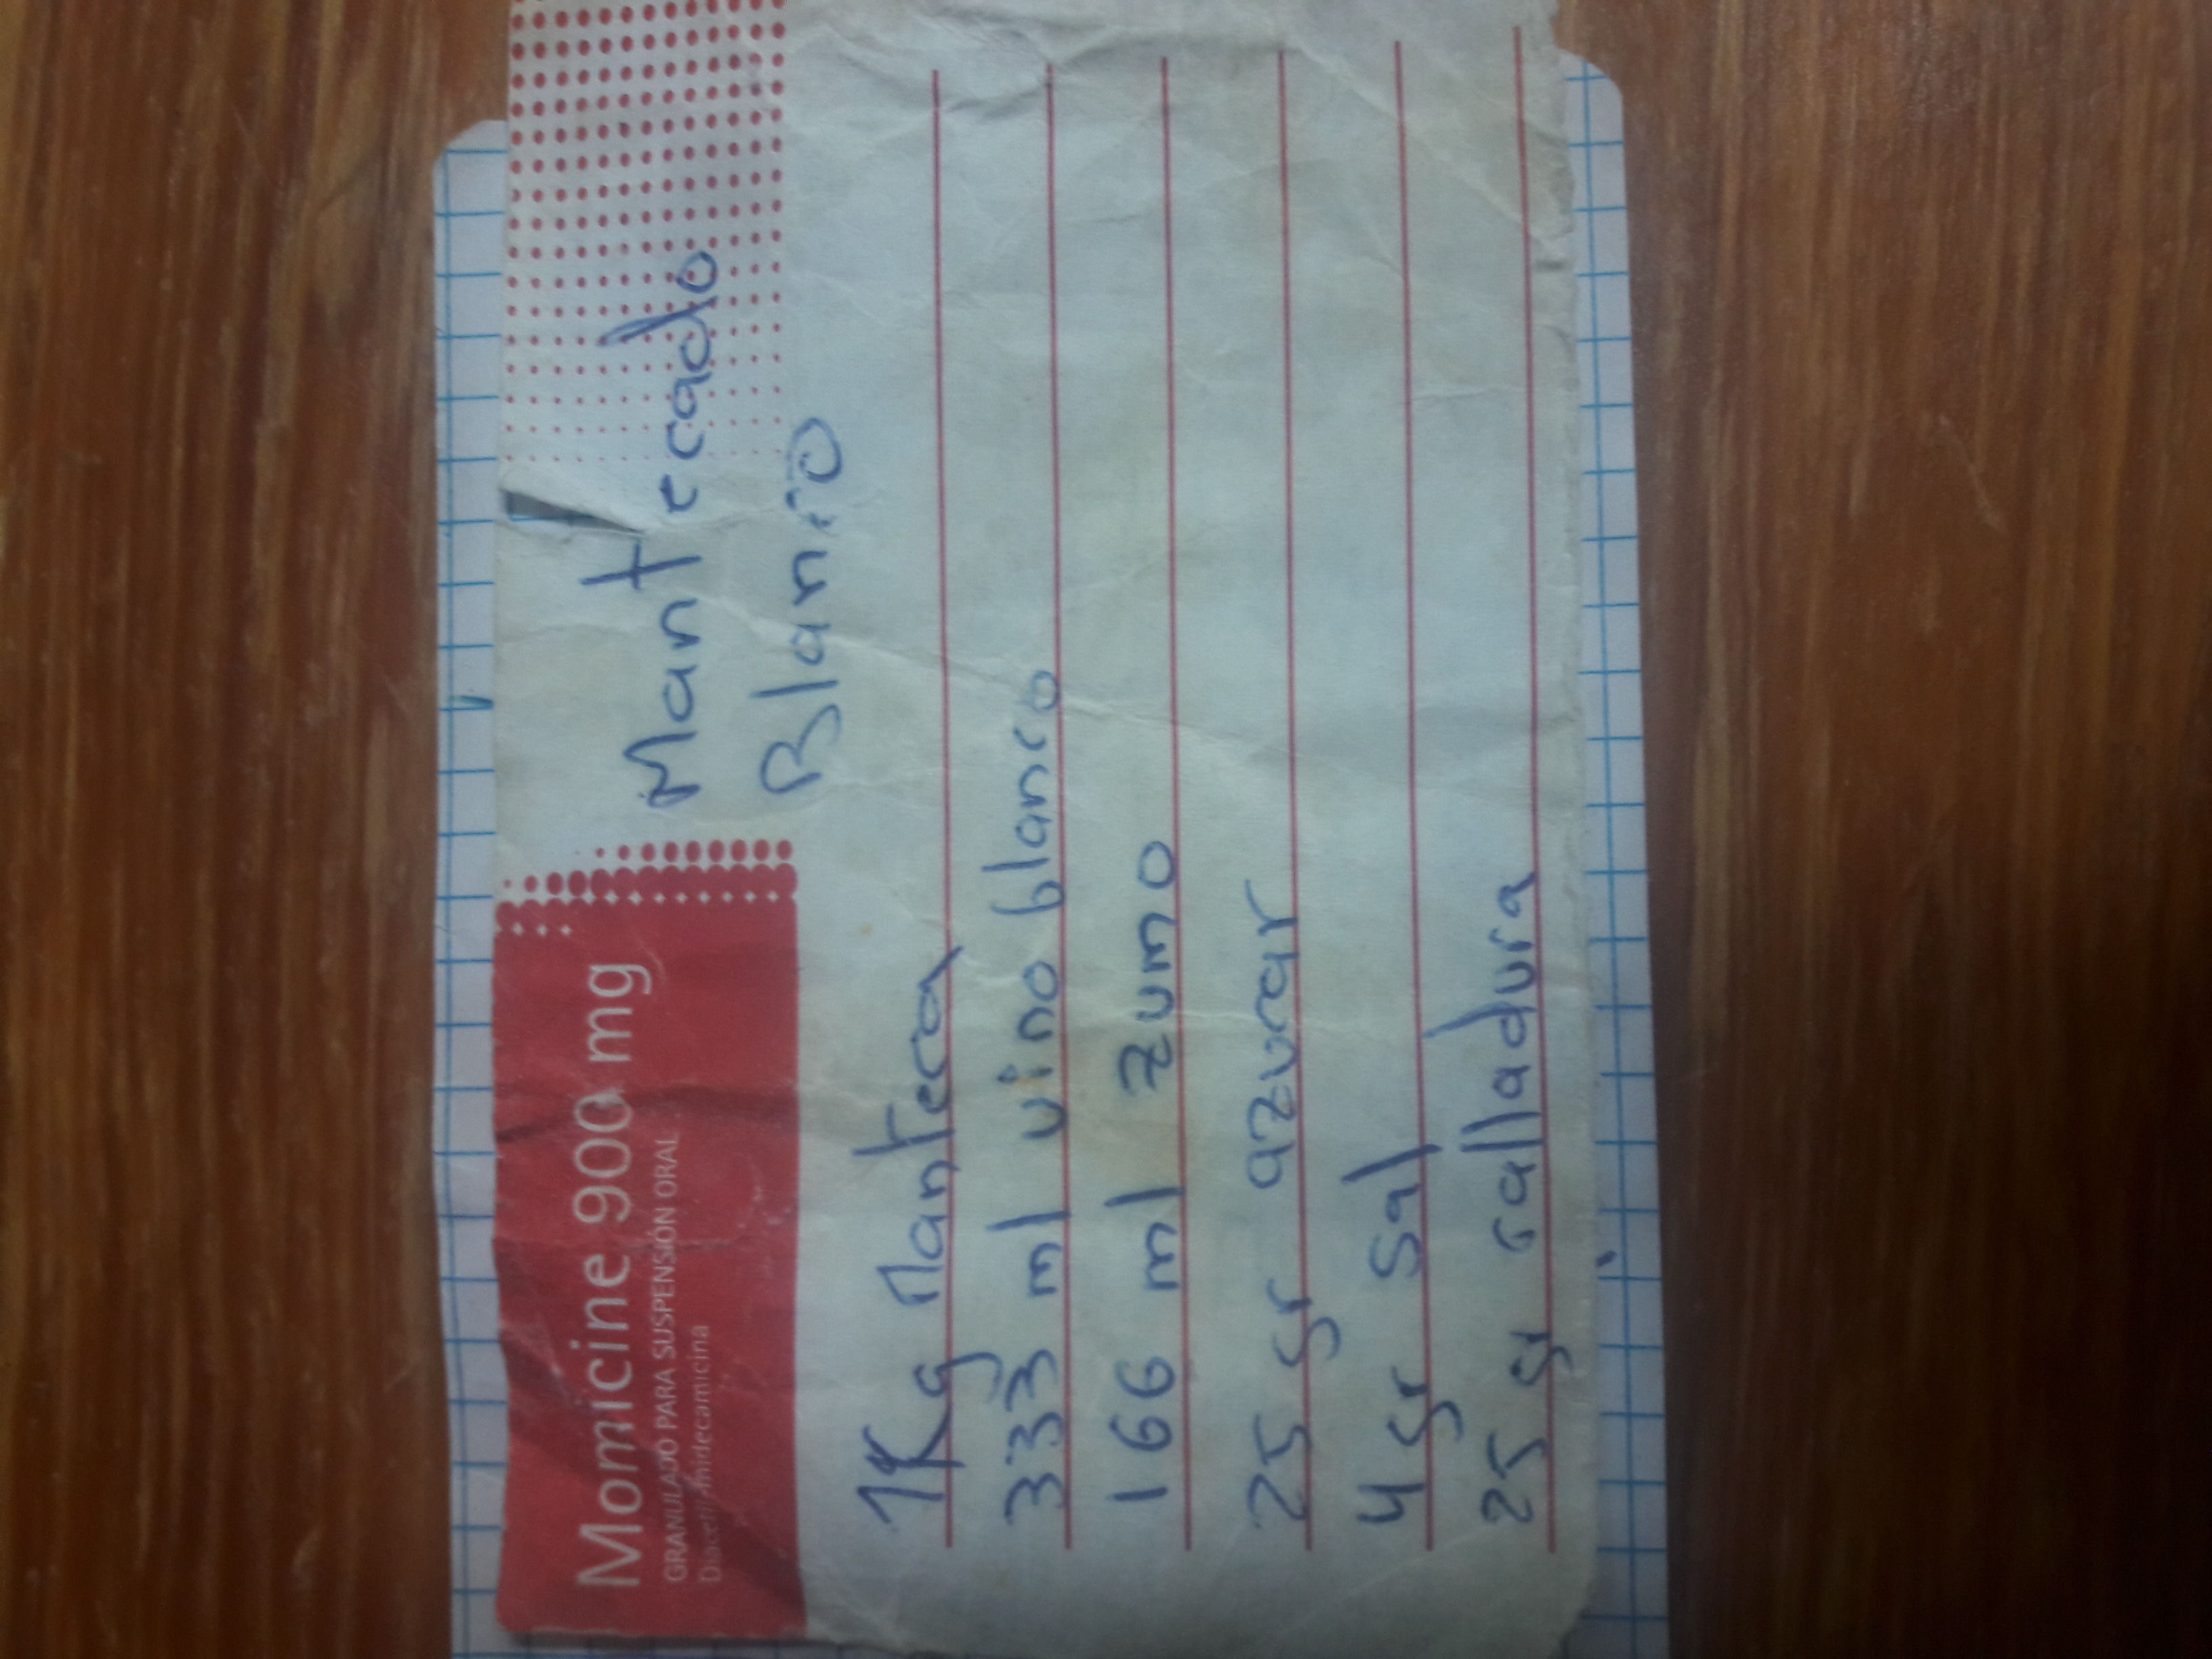 Momicine 900 mg
GRANULADO PARA SUSPENSIÓN ORAL
Diacetil-midecamicina
Mantecado
Blanco
1Kg Manteca
333 ml vino blanco
166 ml zumo
25 gr azucar
4 gr sal
25 gr ralladura